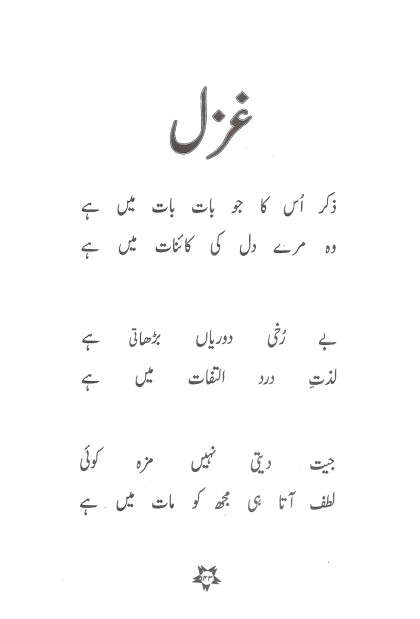 غزل
ذکر اُس کا جو بات بات میں ہے
وہ مرے دل کی کائنات میں ہے
بے رُخی دوریاں بڑھاتی ہے
لذتِ درد التفات میں ہے
جیت دیتی نہیں مزہ کوئی
لطف آتا ہی مجھ کو مات میں ہے